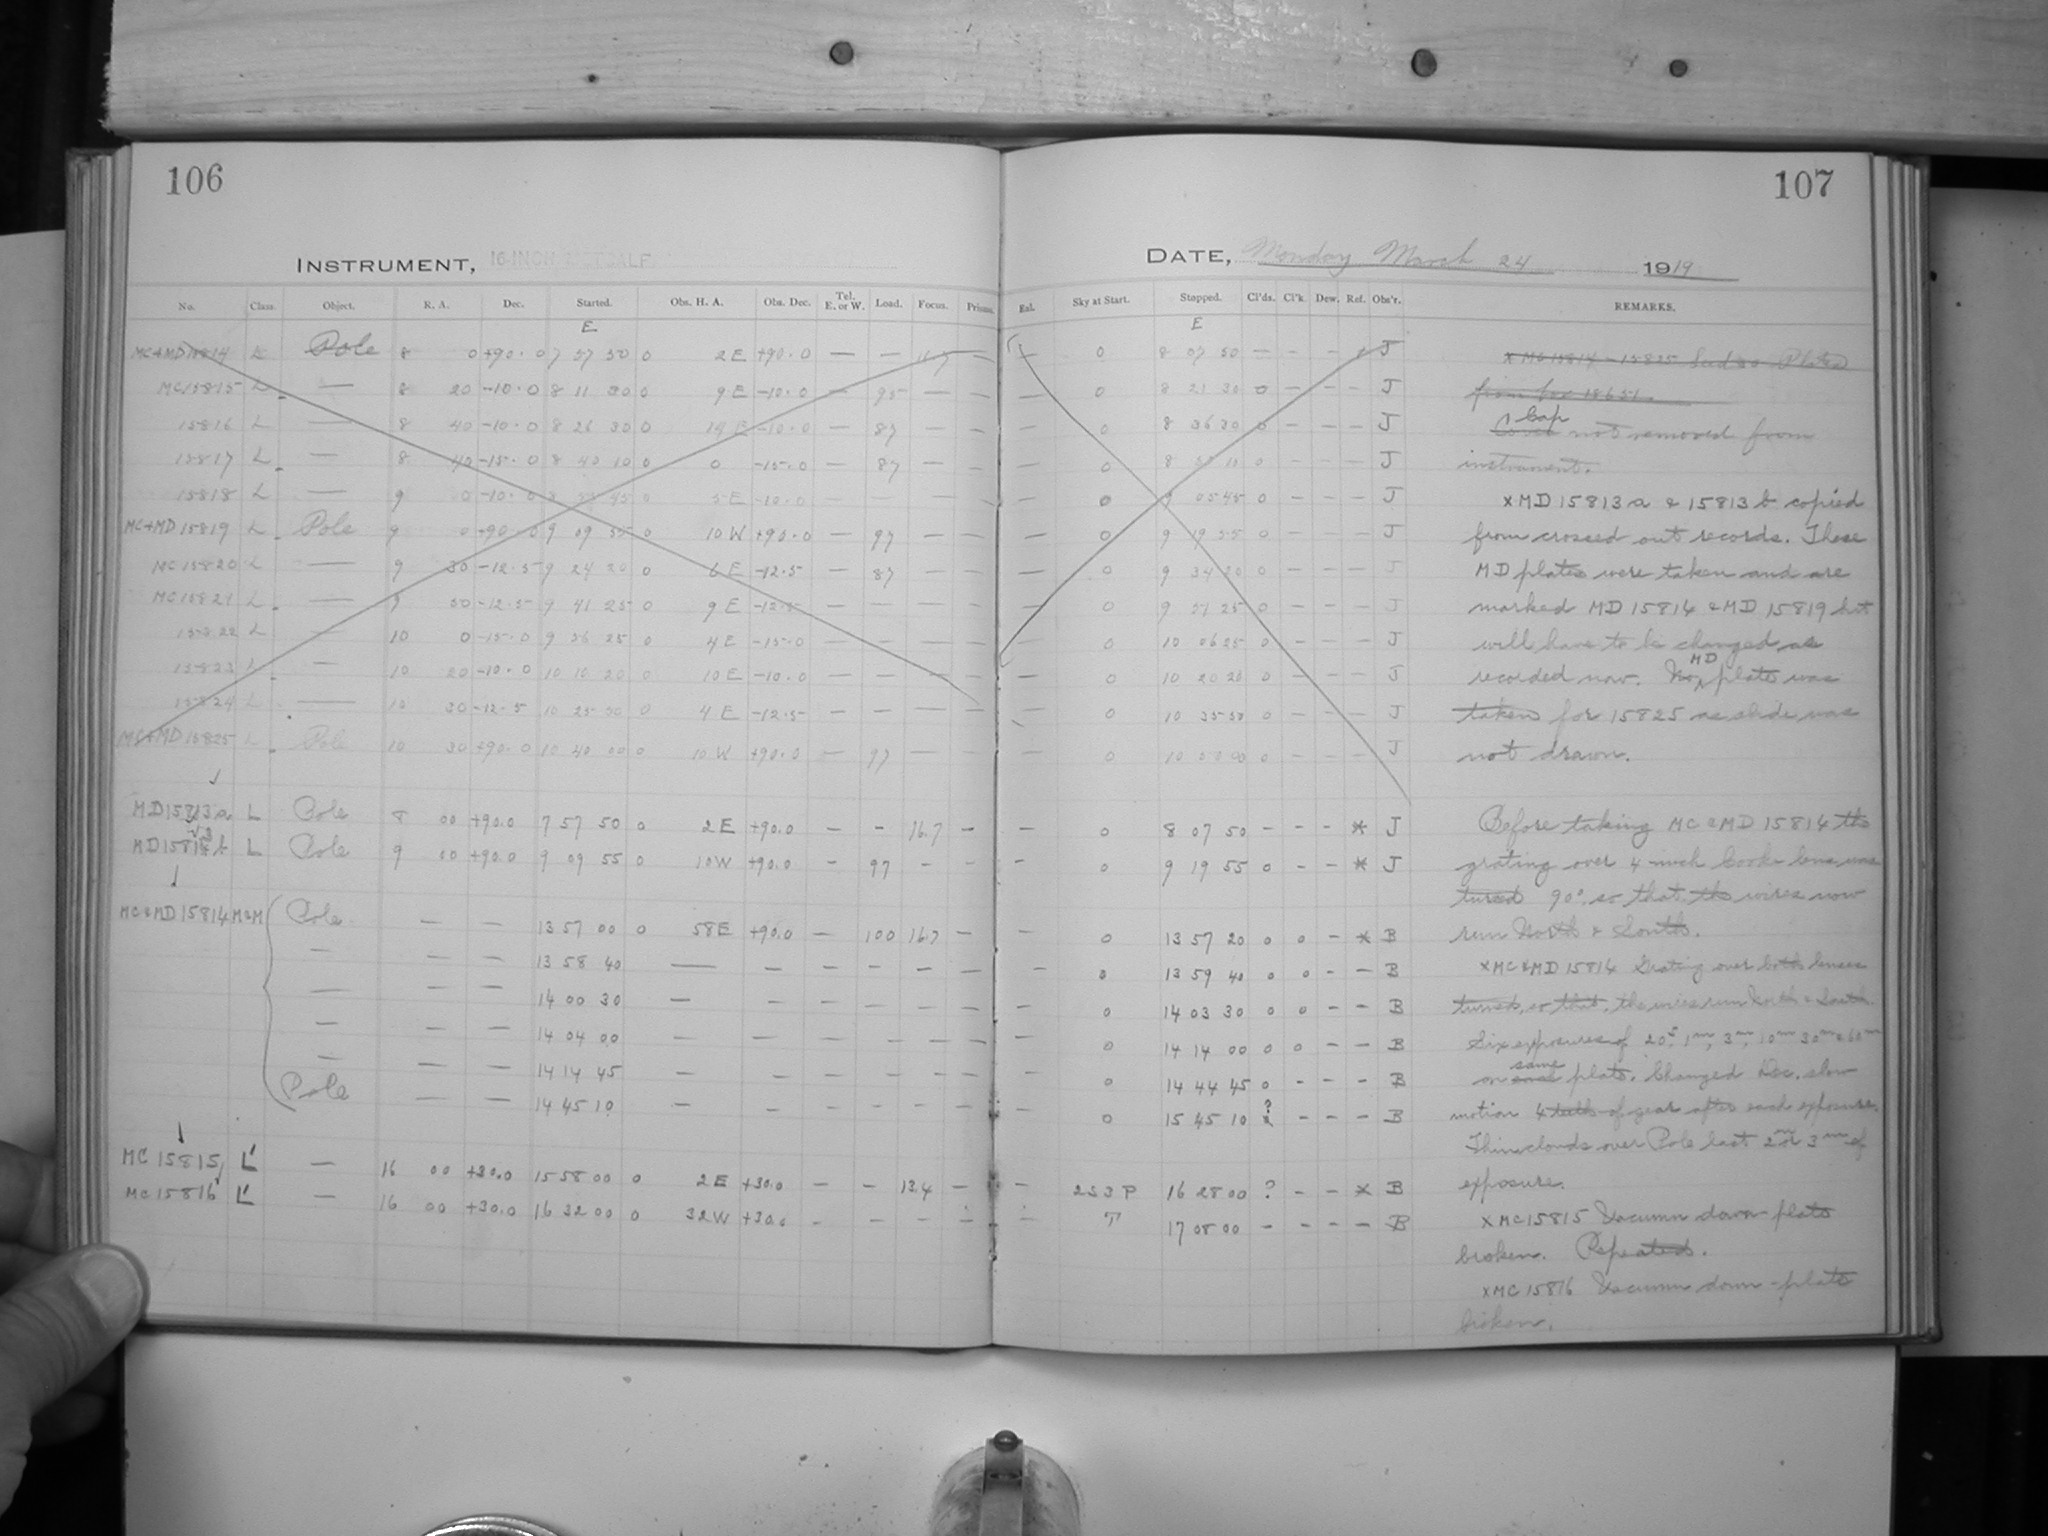 106
INSTRUMENT, 16-INCH METCALF
No. Class. Object. R. A. Dec. Started. Obs. H. A. Obs. Dec. Tel. E. or W. Load. Focus. Prisms.
E
MC+MD15814 L Pole 8 0 +90.0 7 57 50 0 2E +90.0 — — 16.7 —
MC15815 L — 8 20 -10.0 8 11 30 0 9E -10.0 — 95 — —
15816 L — 8 40 -10.0 8 26 30 0 14E -10.0 — 87 — —
15817 L — 8 40 -15.0 8 40 10 0 0 -15.0 — 87 — —
15818 L — 9 0 -10.0 8 55 45 0 5E -10.0 — — — —
MC+MD 15819 L Pole 9 0 +90.0 9 09 55 0 10W +90.0 — 97 — —
MC15820 L — 9 30 -12.5 9 24 20 0 6E -12.5 — 87 — —
MC15821 L — 9 50 -12.5 9 41 25 0 9E -12.5 — — — —
15822 L — 10 0 -15.0 9 56 25 0 4E -15.0 — — — —
15823 L — 10 20 -10.0 10 10 20 0 10E -10.0 — — — —
15824 L — 10 30 -12.5 10 25 50 0 4E -12.5 — — — —
MC+MD 15825 L Pole 10 30 +90.0 10 40 00 0 10W +90.0 — 97 — —
MD15813a L Pole 8 00 +90.0 7 57 50 0 2E +90.0 — — 16.7 —
MD15813b L Pole 9 00 +90.0 9 09 55 0 10W +90.0 — 97 — —
MC&MD15814 M&M Pole — — 13 57 00 0 58E +90.0 — 100 16.7 —
— — — 13 58 40 — — — — — —
— — — 14 00 30 — — — — — —
— — — 14 04 00 — — — — — —
— — — 14 14 45 — — — — — —
Pole — — 14 45 10 — — — — — —
MC15815 L' — 16 00 +30.0 15 58 00 0 2E +30.0 — — 13.4 —
MC15816 L' — 16 00 +30.0 16 32 00 0 32W +30.0 — — — —
107
DATE, Monday March 24 1919
Enl. Sky at Start. Stopped. Cl'ds. Cl'k. Dew. Ref. Obs'r. REMARKS.
E
— 0 8 07 50 — — — J
— 0 8 21 30 0 — — — J
— 0 8 36 30 0 — — — J
— 0 8 50 10 0 — — — J
— 0 9 05 45 0 — — — J
— 0 9 19 55 0 — — — J
— 0 9 34 20 0 — — — J
— 0 9 51 25 0 — — — J
— 0 10 06 25 0 — — — J
— 0 10 20 20 0 — — — J
— 0 10 35 50 0 — — — J
— 0 10 50 00 0 — — — J
— 0 8 07 50 — — — * J
— 0 9 19 55 0 — — * J
— 0 13 57 20 0 0 — * B
— 0 13 59 40 0 0 — — B
0 14 03 30 0 0 — — B
0 14 14 00 0 0 — — B
0 14 44 45 0 — — — B
— 0 15 45 10 ? — — — B
— 2S3P 16 28 00 ? — — x B
— T 17 08 00 — — — — B
x MC15814-15825 Seed 30 Plates
from box 18651.
Cap
Cover not removed from
instrument.
x MD 15813a & 15813b copied
from crossed out records. These
MD plates were taken and are
marked MD 15814 & MD 15819 but
will have to be changed as
recorded now. No MD plate was
taken for 15825 as slide was
not drawn.
Before taking MC & MD 15814 the
grating over 4 inch Cooke lens was
turned 90°, so that the wires now
run North & South.
x MC&MD 15814 Grating over both lenses
turned, so that, the wires run North & South.
Six exposures of 20s, 1m, 3m, 10m 30m & 60m
on same plate. Changed Dec. slow
motion 4 teeth of gear after each exposure.
Thin clouds over Pole last 2m or 3m of
exposure.
x MC15815 Vacumn down plate
broken. Repeated.
x MC 15816 Vacumn down - plate
broken.